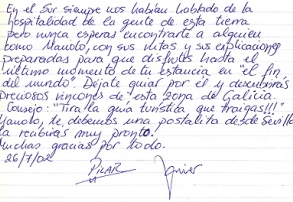 En el Sur siempre nos habían hablado de la
hospitalidad de la gente de esta tierra
pero nunca esperas encontrarte a alguien
como Manolo, con sus rutas y sus explicaciones
preparadas para que disfrutes hasta el
último momento de tu estancia en "el fin
del mundo". Déjate guiar por él y descubrirás
preciosos rincones de esta zona de Galicia.
Consejo: "Tira la guía turística que traigas!!!"
Manolo, te debemos una postalita desde Sevilla
la recibirás muy pronto!
Muchas gracias por todo.
26/7/02
PILAR Javier